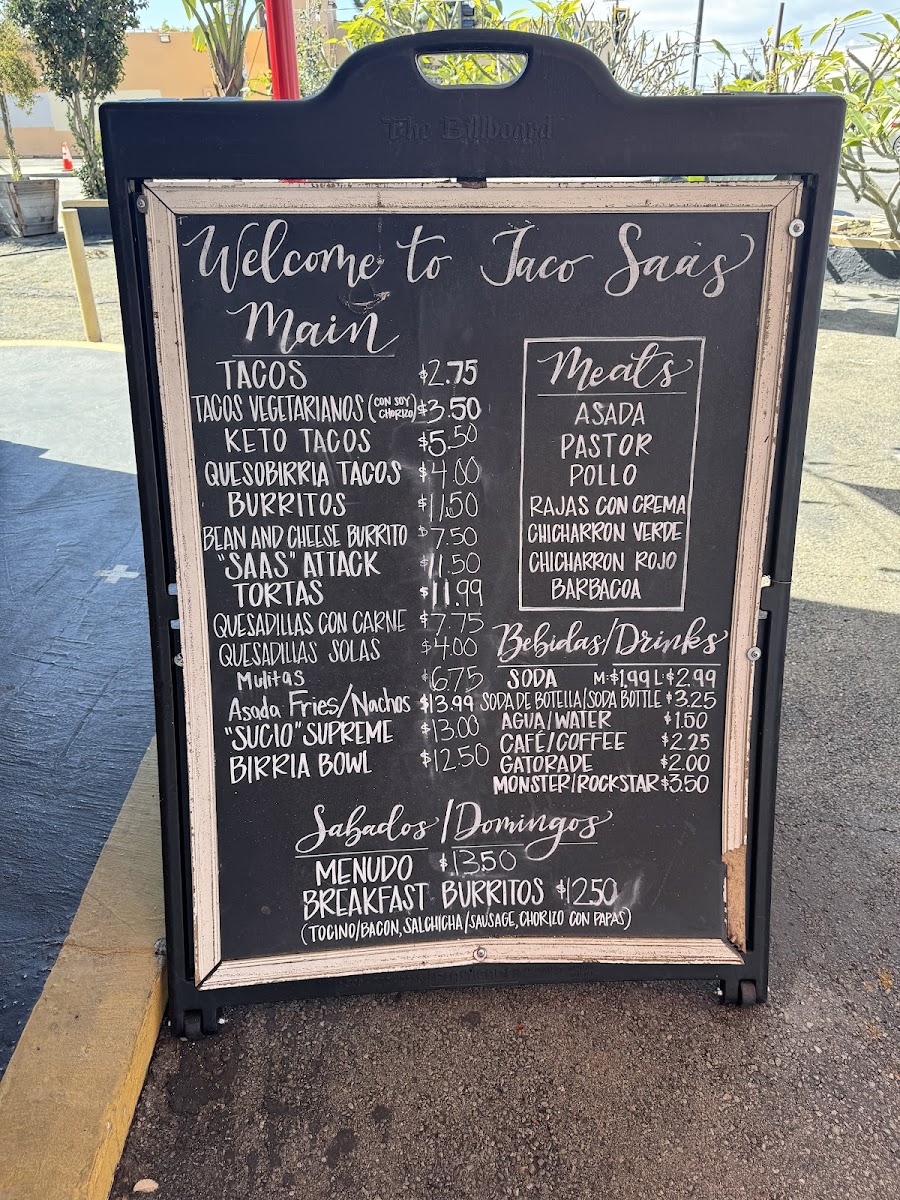 The Billboard
Welcome to Taco Saas
Main
TACOS $2.75
TACOS VEGETARIANOS (CON SOY CHORIZO) $3.50
KETO TACOS $5.50
QUESOBIRRIA TACOS $4.00
BURRITOS $11.50
BEAN AND CHEESE BURRITO $7.50
"SAAS" ATTACK $11.50
TORTAS $11.99
QUESADILLAS CON CARNE $7.75
QUESADILLAS SOLAS $4.00
Mulitas $6.75
Asada Fries/Nachos $13.99
"SUCIO" SUPREME $13.00
BIRRIA BOWL $12.50
Meats
ASADA
PASTOR
POLLO
RAJAS CON CREMA
CHICHARRON VERDE
CHICHARRON ROJO
BARBACOA
Bebidas/Drinks
SODA M:$1.99 L:$2.99
SODA DE BOTELLA/SODA BOTTLE $3.25
AGUA/WATER $1.50
CAFÉ/COFFEE $2.25
GATORADE $2.00
MONSTER/ROCKSTAR $3.50
Sabados/Domingos
MENUDO $13.50
BREAKFAST BURRITOS $12.50
(TOCINO/BACON, SALCHICHA/SAUSAGE, CHORIZO CON PAPAS)